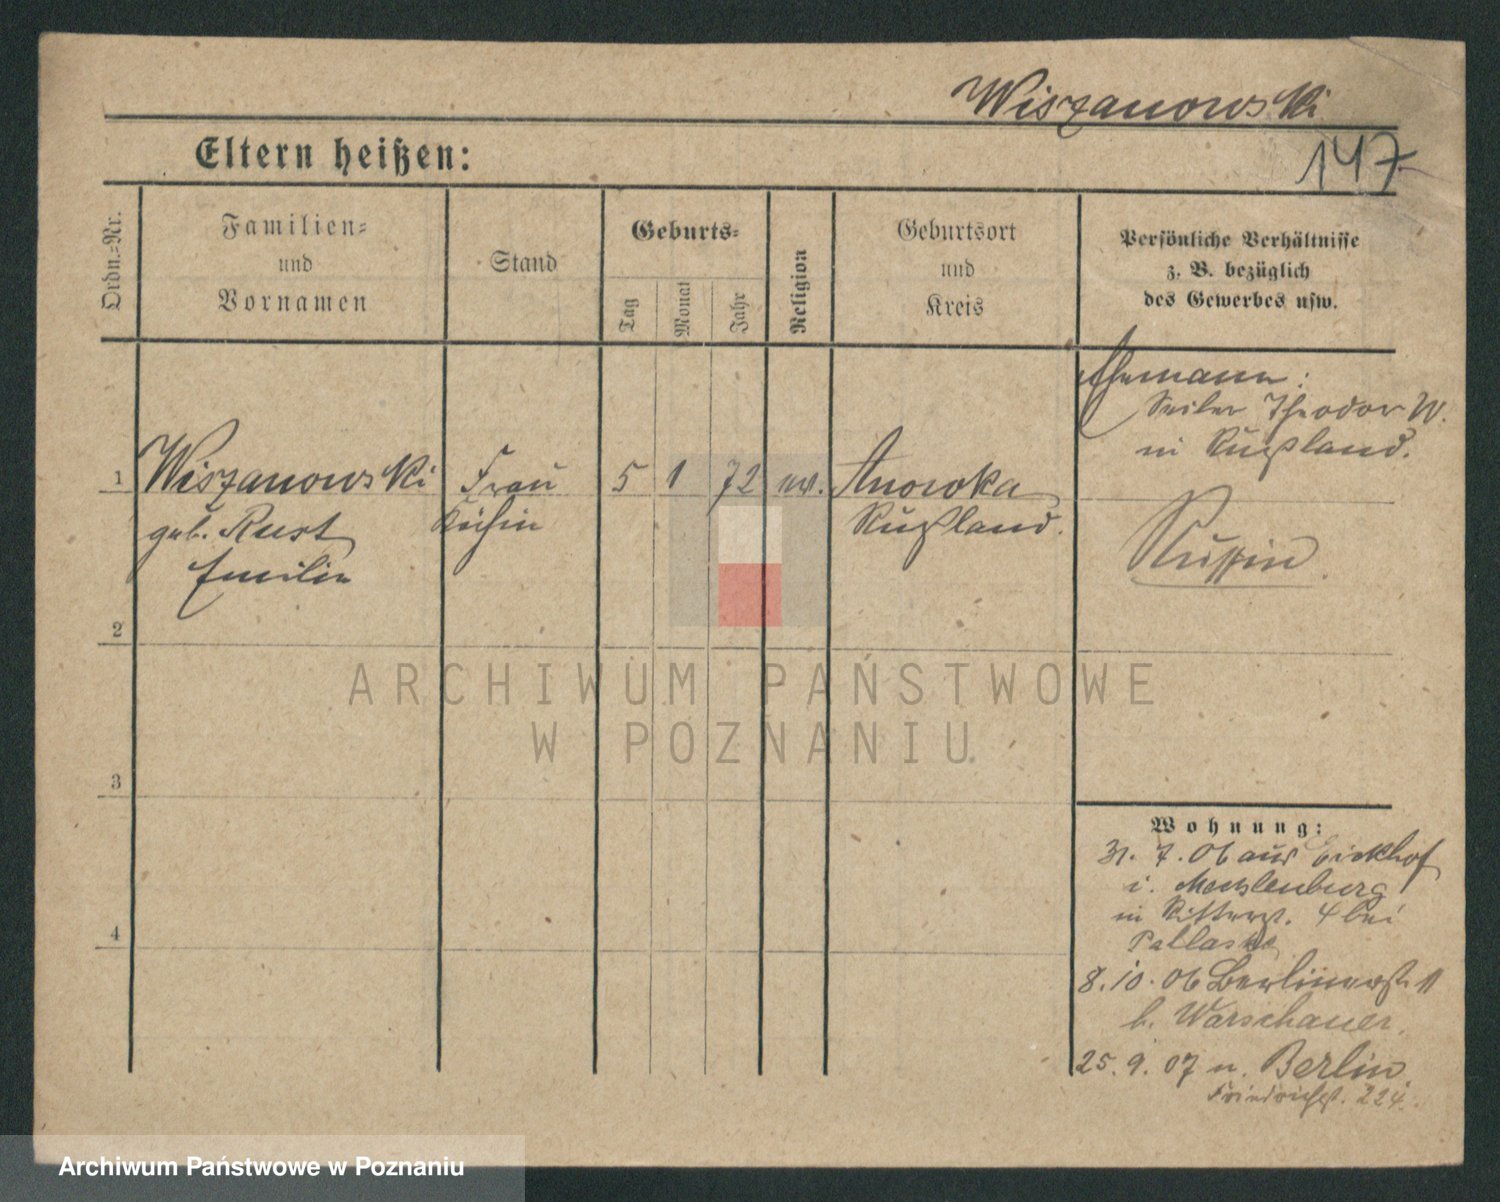 Wiszanowski
Eltern heißen:
147
Ordn.-Nr.
Familien-
und
Vornamen
Stand
Geburts-
Tag
Monat
Jahr
Religion
Geburtsort
und
Kreis
Persönliche Verhältnisse
z. B. bezüglich
des Gewerbes usw.
Ehemann:
Seiler Theodor W.
in Rußland.
1
Wiszanowski
geb. Rust
Emilie
Frau
Köchin
5 1 72 ev.
Rußland.
Russin.
2
3
4
Wohnung:
31. 7. 06 aus Eickhof
i. Mecklenburg
in Ritterst. 4 bei
Pallaske
8. 10. 06 Berlinerst. 11
b. Warschauer.
25. 9. 07 n. Berlin
Friedrichst. 224.
ARCHIWUM PAŃSTWOWE
W POZNANIU
Archiwum Państwowe w Poznaniu